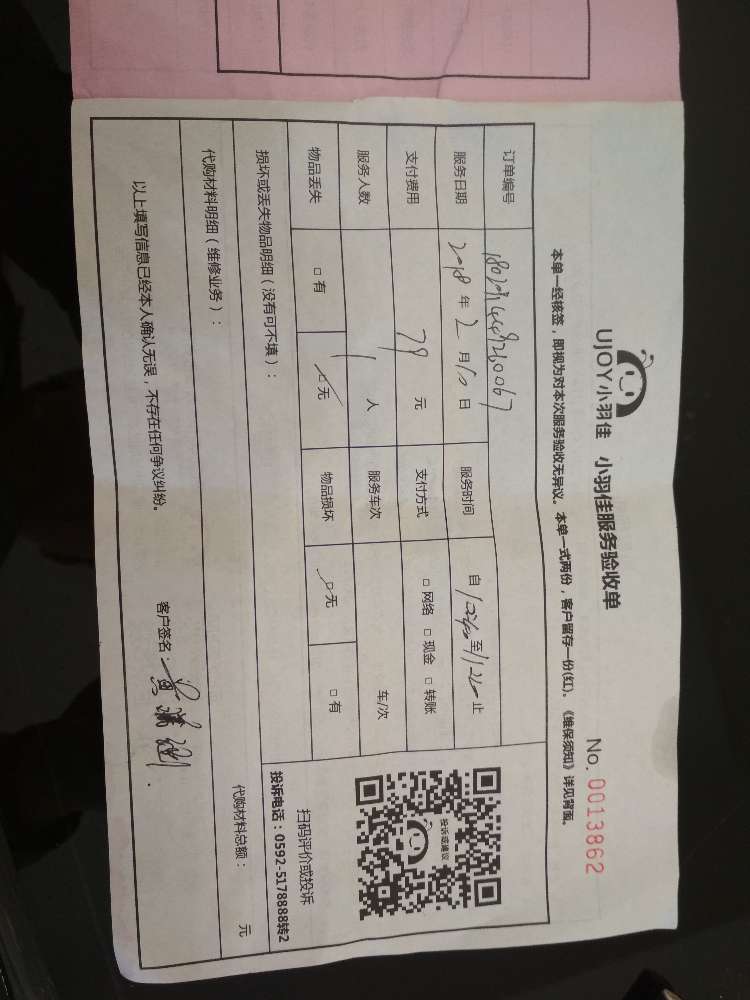 UJOY小羽佳 小羽佳服务验收单
No. 0013862
本单一经核签，即视为对本次服务验收无异议。本单一式两份，客户留存一份(红)。《维保须知》详见背面。
订单编号
服务日期 2018年2月10日 服务时间 自 至 止
支付费用 79元 支付方式 □网络 □现金 □转账
服务人数 1人 服务车次 车/次
物品丢失 □有 □无 物品损坏 □无 □有
损坏或丢失物品明细（没有可不填）：
代购材料明细（维修业务）：
代购材料总额： 元
投诉或建议
扫码评价或投诉
投诉电话：0592-5178888转2
以上填写信息已经本人确认无误，不存在任何争议纠纷。
客户签名：